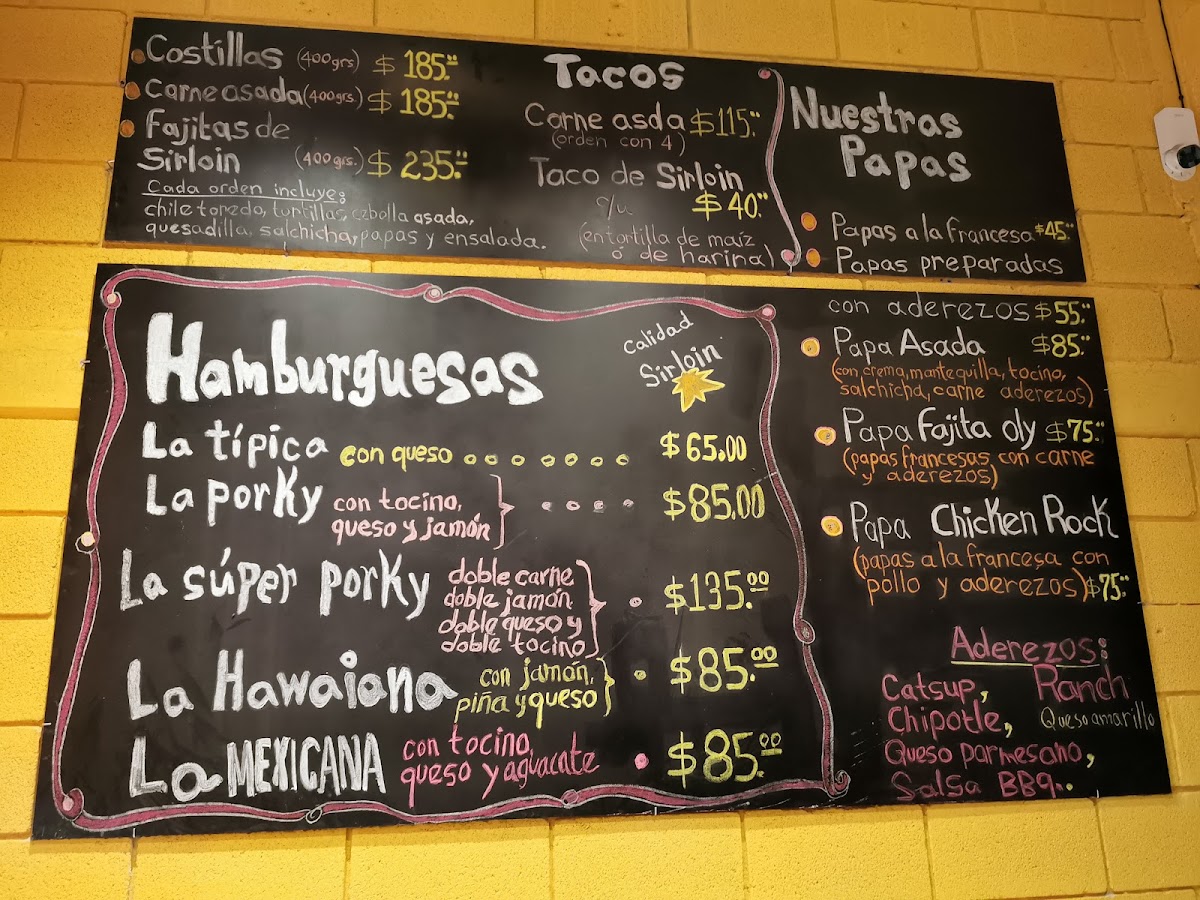 Costillas (400grs) $ 185.00
Carne asada (400grs.) $ 185.00
Fajitas de
Sirloin (400grs.) $ 235.00
Cada orden incluye:
chile toredo, tortillas, cebolla asada,
quesadilla, salchicha, papas y ensalada.
Tacos
Carne asda $115.00
(orden con 4)
Taco de Sirloin
c/u $ 40.00
(en tortilla de maíz
ó de harina)
Nuestras
Papas
Papas a la francesa $45.00
Papas preparadas
con aderezos $55.00
Papa Asada $85.00
(con crema, mantequilla, tocino,
salchicha, carne aderezos)
Papa Fajita oly $75.00
(papas francesas con carne
y aderezos)
Papa Chicken Rock
(papas a la francesa con
pollo y aderezos) $75.00
Aderezos:
Catsup, Ranch
Chipotle, Queso amarillo
Queso parmesano,
Salsa BBq..
Hamburguesas
Calidad
Sirloin
La típica con queso . . . . . . . $65.00
La porky con tocino,
queso y jamón . . . . $85.00
La súper porky doble carne
doble jamón
doble queso y
doble tocino . $135.00
La Hawaiana con jamón,
piña y queso . $85.00
La MEXICANA con tocino,
queso y aguacate . $85.00